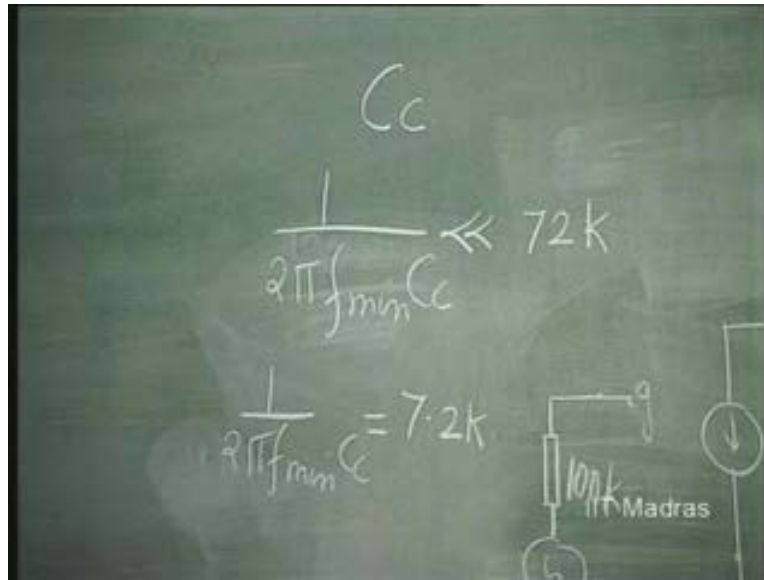 Cc
1
2πf_min Cc ≪ 72k
1
2πf_min Cc = 7.2k
g
Madras